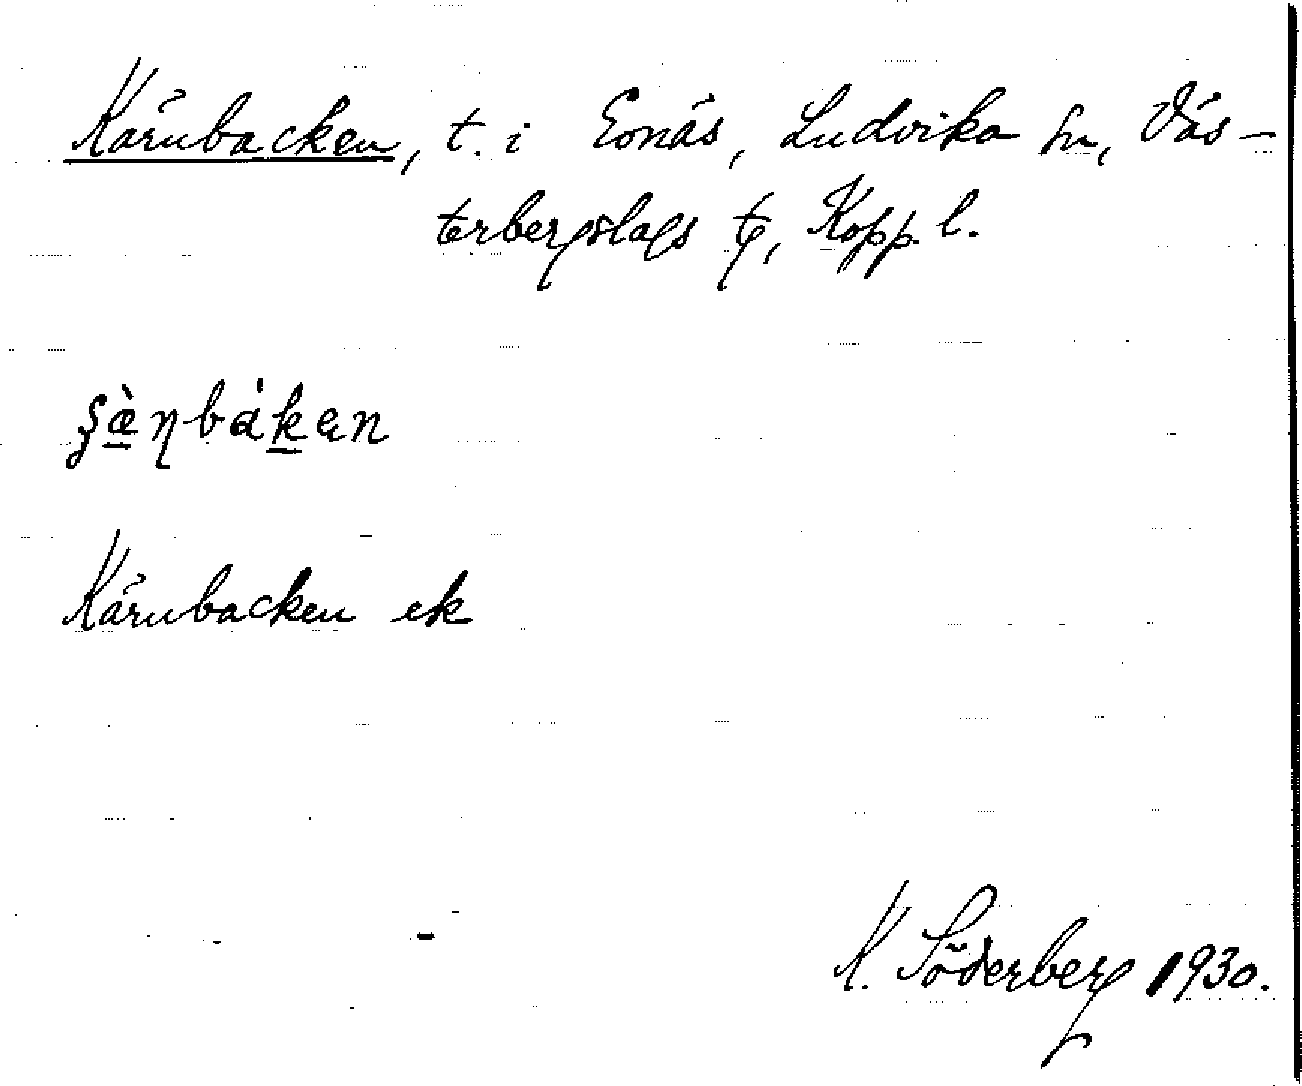 Kärnbacken, t. i Sonäs, Ludvika sn, Väs-
terbergslags tg, Kopp. l.
Kärnbacken ek
K. Söderberg 1930.